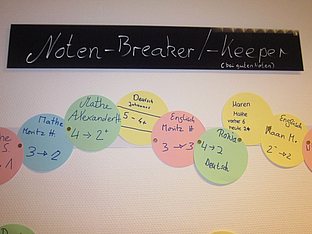 Noten-Breaker/-Keeper
(bei guten Noten)
Mathe
Moritz H.
3→2
Mathe
Alexander H
4→2⁺
Deutsch
Johannes
5-4+
English
Moritz H
3→3
4→2
Deutsch
Mathe
vorher 5
heute 2+
English
Maan M.
2⁻→2
5
1